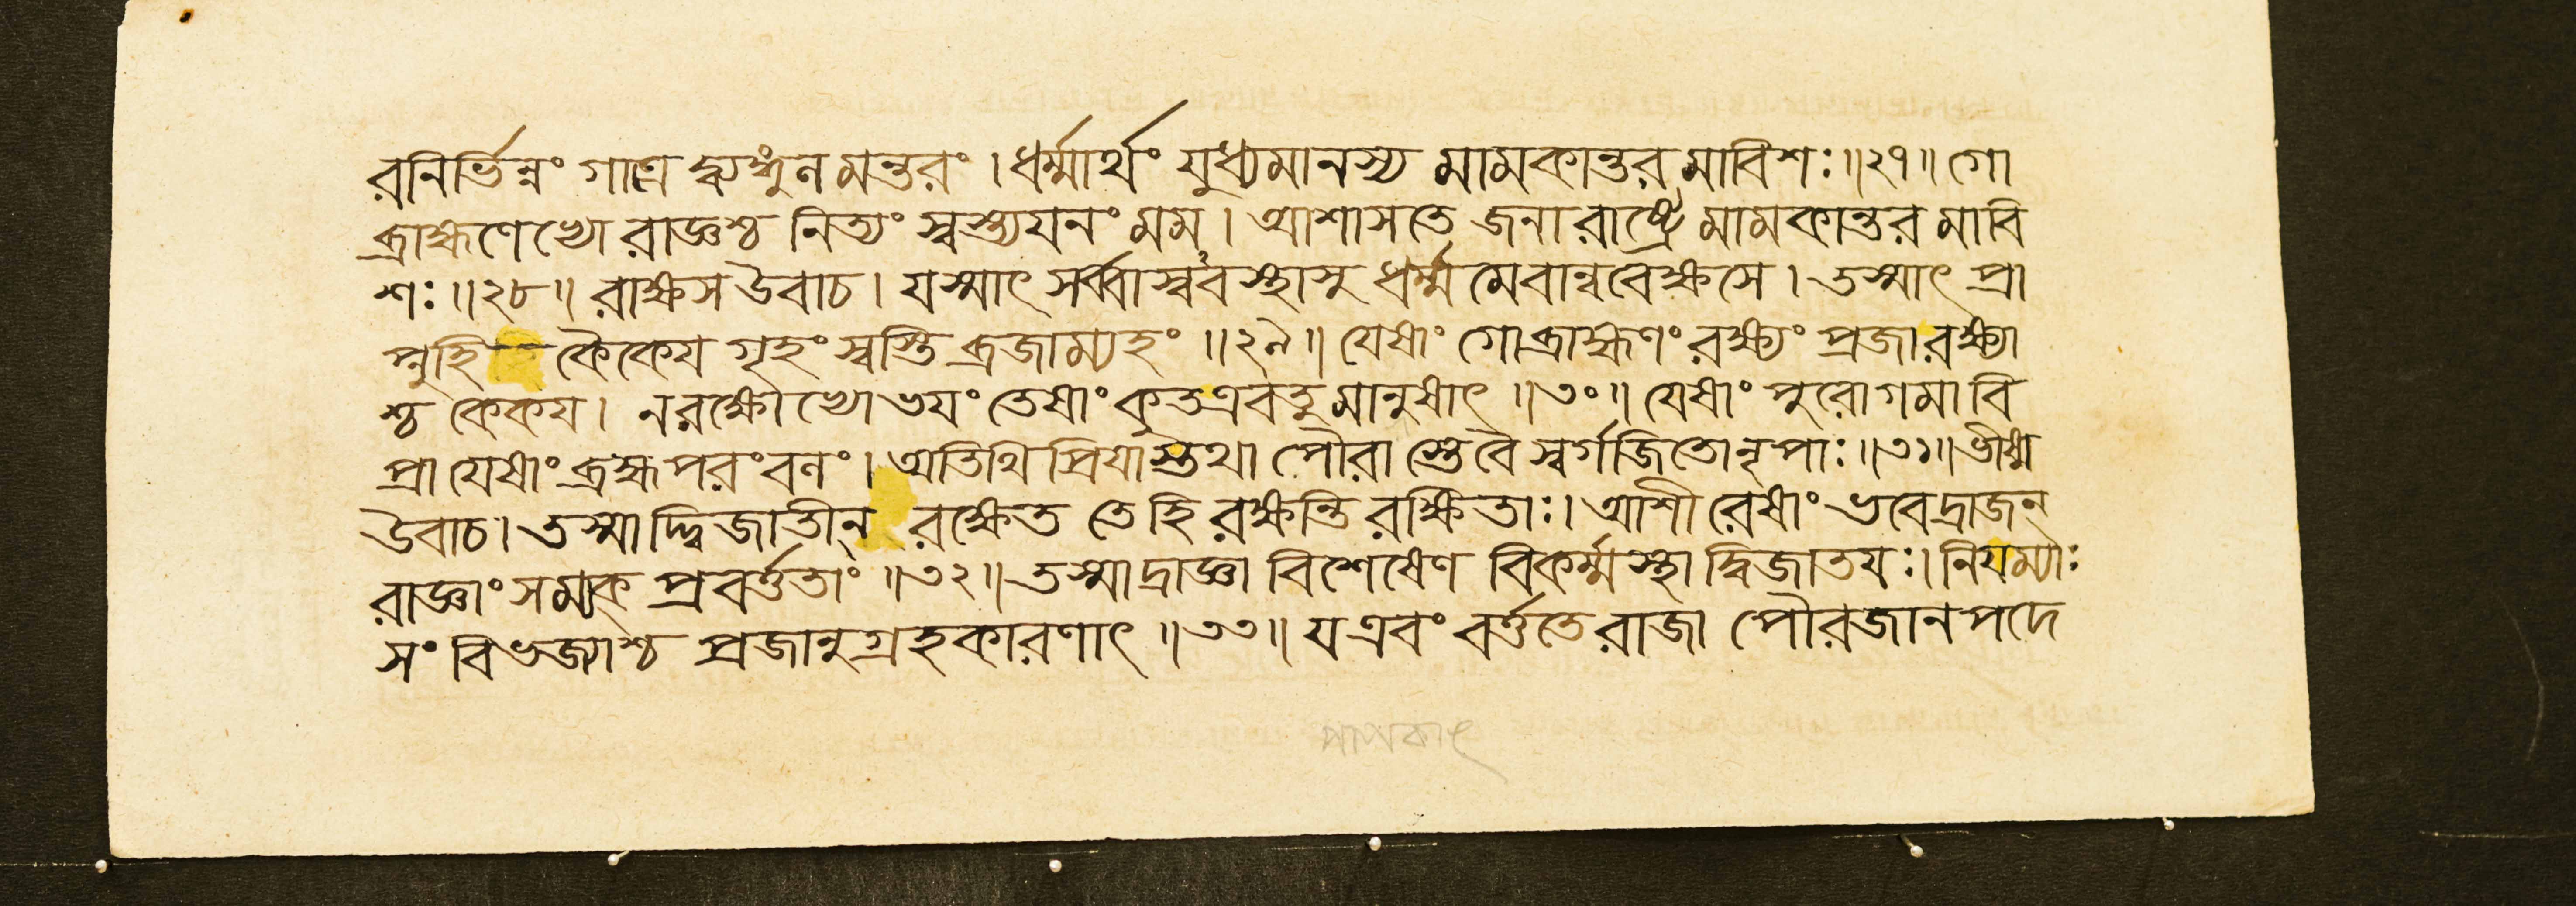 রনির্ভিন্নং গাত্রে দ্ব্যঙ্গুনমন্তরং । ধর্ম্মার্থং যুধ্যমানস্য মামকান্তরমাবিশঃ ॥২৭॥ গো
ব্রাহ্মণেভ্যো রাজ্ঞশ্চ নিত্যং স্বস্ত্যযনং মম । আশাসতে জনারাষ্ট্রে মামকান্তরমাবি
শঃ ॥২৮॥ রাক্ষস উবাচ । যস্মাৎ সর্ব্বাস্ববস্থাসু ধর্ম্মমেবান্ববেক্ষসে । তস্মাৎ প্রা
প্নুহি কৈকেয গৃহং স্বস্তি ব্রজাম্যহং ॥২৯॥ যেষাং গোব্রাহ্মণং রক্ষ্যং প্রজারক্ষ্যা
শ্চ কেকয । নরক্ষোভ্যো ভযং তেষাং কুতএবতু মানুষাৎ ॥৩০॥ যেষাং পুরোগমা বি
প্রা যেষাং ব্রহ্মপরং বনং । অতিথি প্রিযাস্তথা পৌরা স্তেবৈ স্বর্গজিতোনৃপাঃ ॥৩১॥ ভীষ্ম
উবাচ । তস্মাদ্দ্বিজাতীন্ রক্ষেত তেহি রক্ষন্তি রক্ষিতাঃ । আশীরেষাং ভবেদ্রাজন্
রাজ্ঞাং সম্যক্ প্রবর্ত্ততাং ॥৩২॥ তস্মাদ্রাজ্ঞা বিশেষেণ বিকর্ম্মস্থা দ্বিজাতযঃ । নিযম্যাঃ
সং বিভজ্যাশ্চ প্রজানুগ্রহকারণাৎ ॥৩৩॥ য এবং বর্ত্ততে রাজা পৌরজানপদে